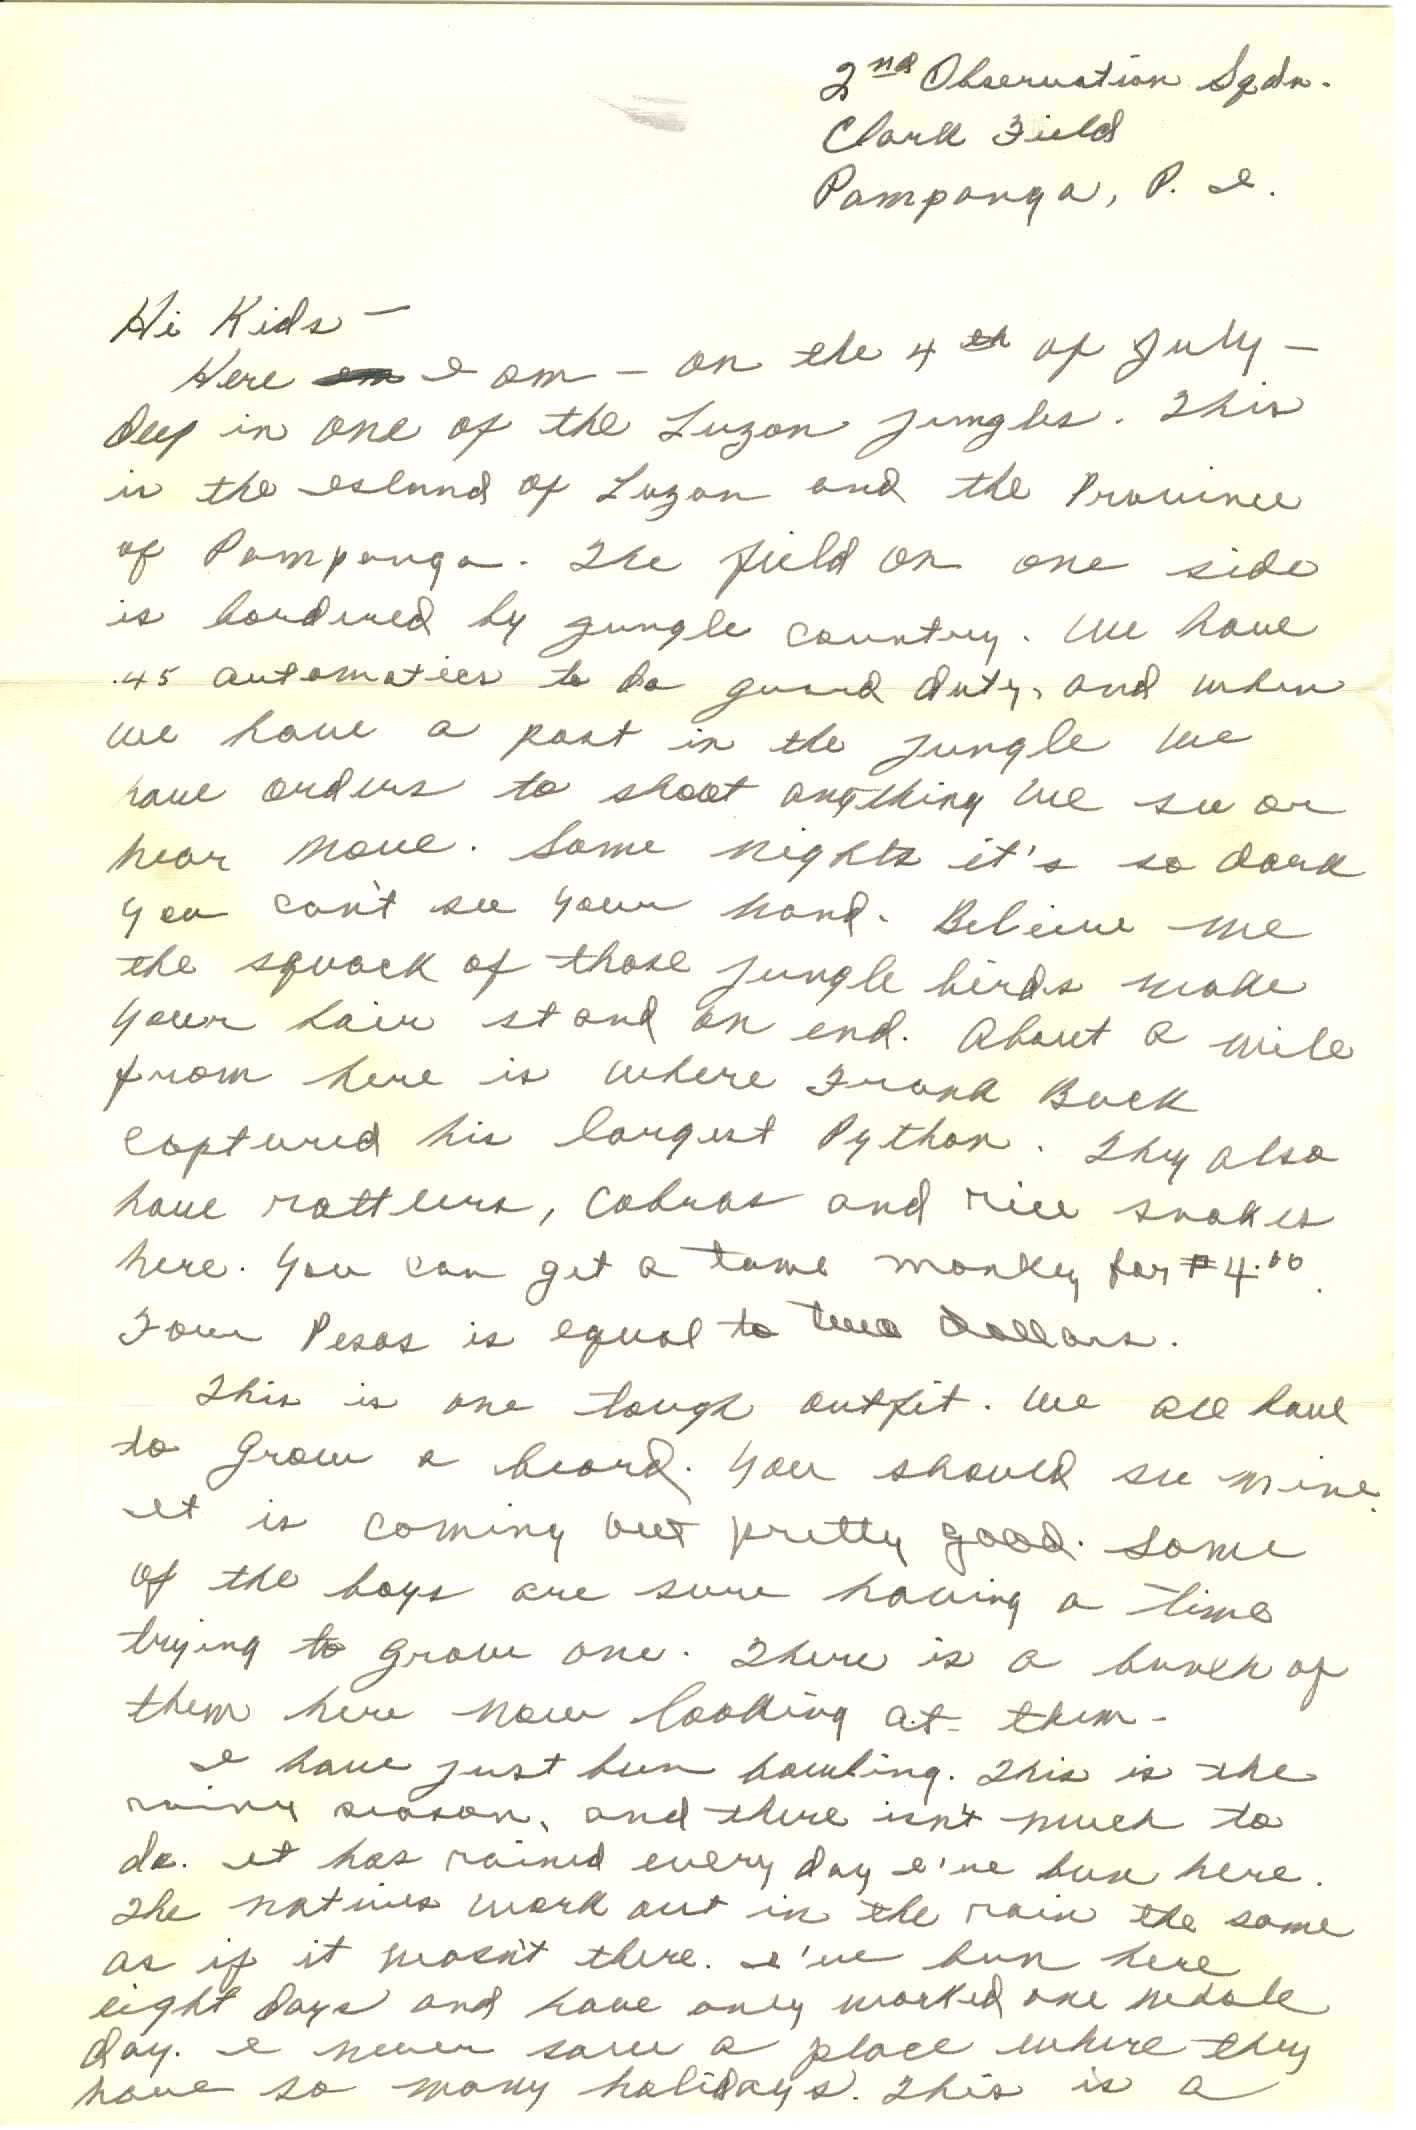 2nd Observation Sqdn.
Clark Field
Pampanga, P. I.
Hi Kids —
Here I am — on the 4th of July —
deep in one of the Luzon jungles. This
is the Island of Luzon and the Province
of Pampanga. The field on one side
is bordered by jungle country. We have
.45 automatics to do guard duty, and when
we have a post in the jungle we
have orders to shoot anything we see or
hear move. Some nights it's so dark
you can't see your hand. Believe me
the squack of those jungle birds make
your hair stand on end. About a mile
from here is where Frank Buck
captured his largest Python. They also
have rattlers, Cobras and rice snakes
here. You can get a tame monkey for ₱4.00.
Four Pesos is equal to two dollars.
This is one tough outfit. We all have
to grow a beard. You should see mine.
It is coming out pretty good. Some
of the boys are sure having a time
trying to grow one. There is a bunch of
them here now looking at them —
I have just been bowling. This is the
rainy season, and there isn't much to
do. It has rained every day I've been here.
The natives work out in the rain the same
as if it wasn't there. I've been here
eight days and have only worked one whole
day. I never saw a place where they
have so many holidays. This is a